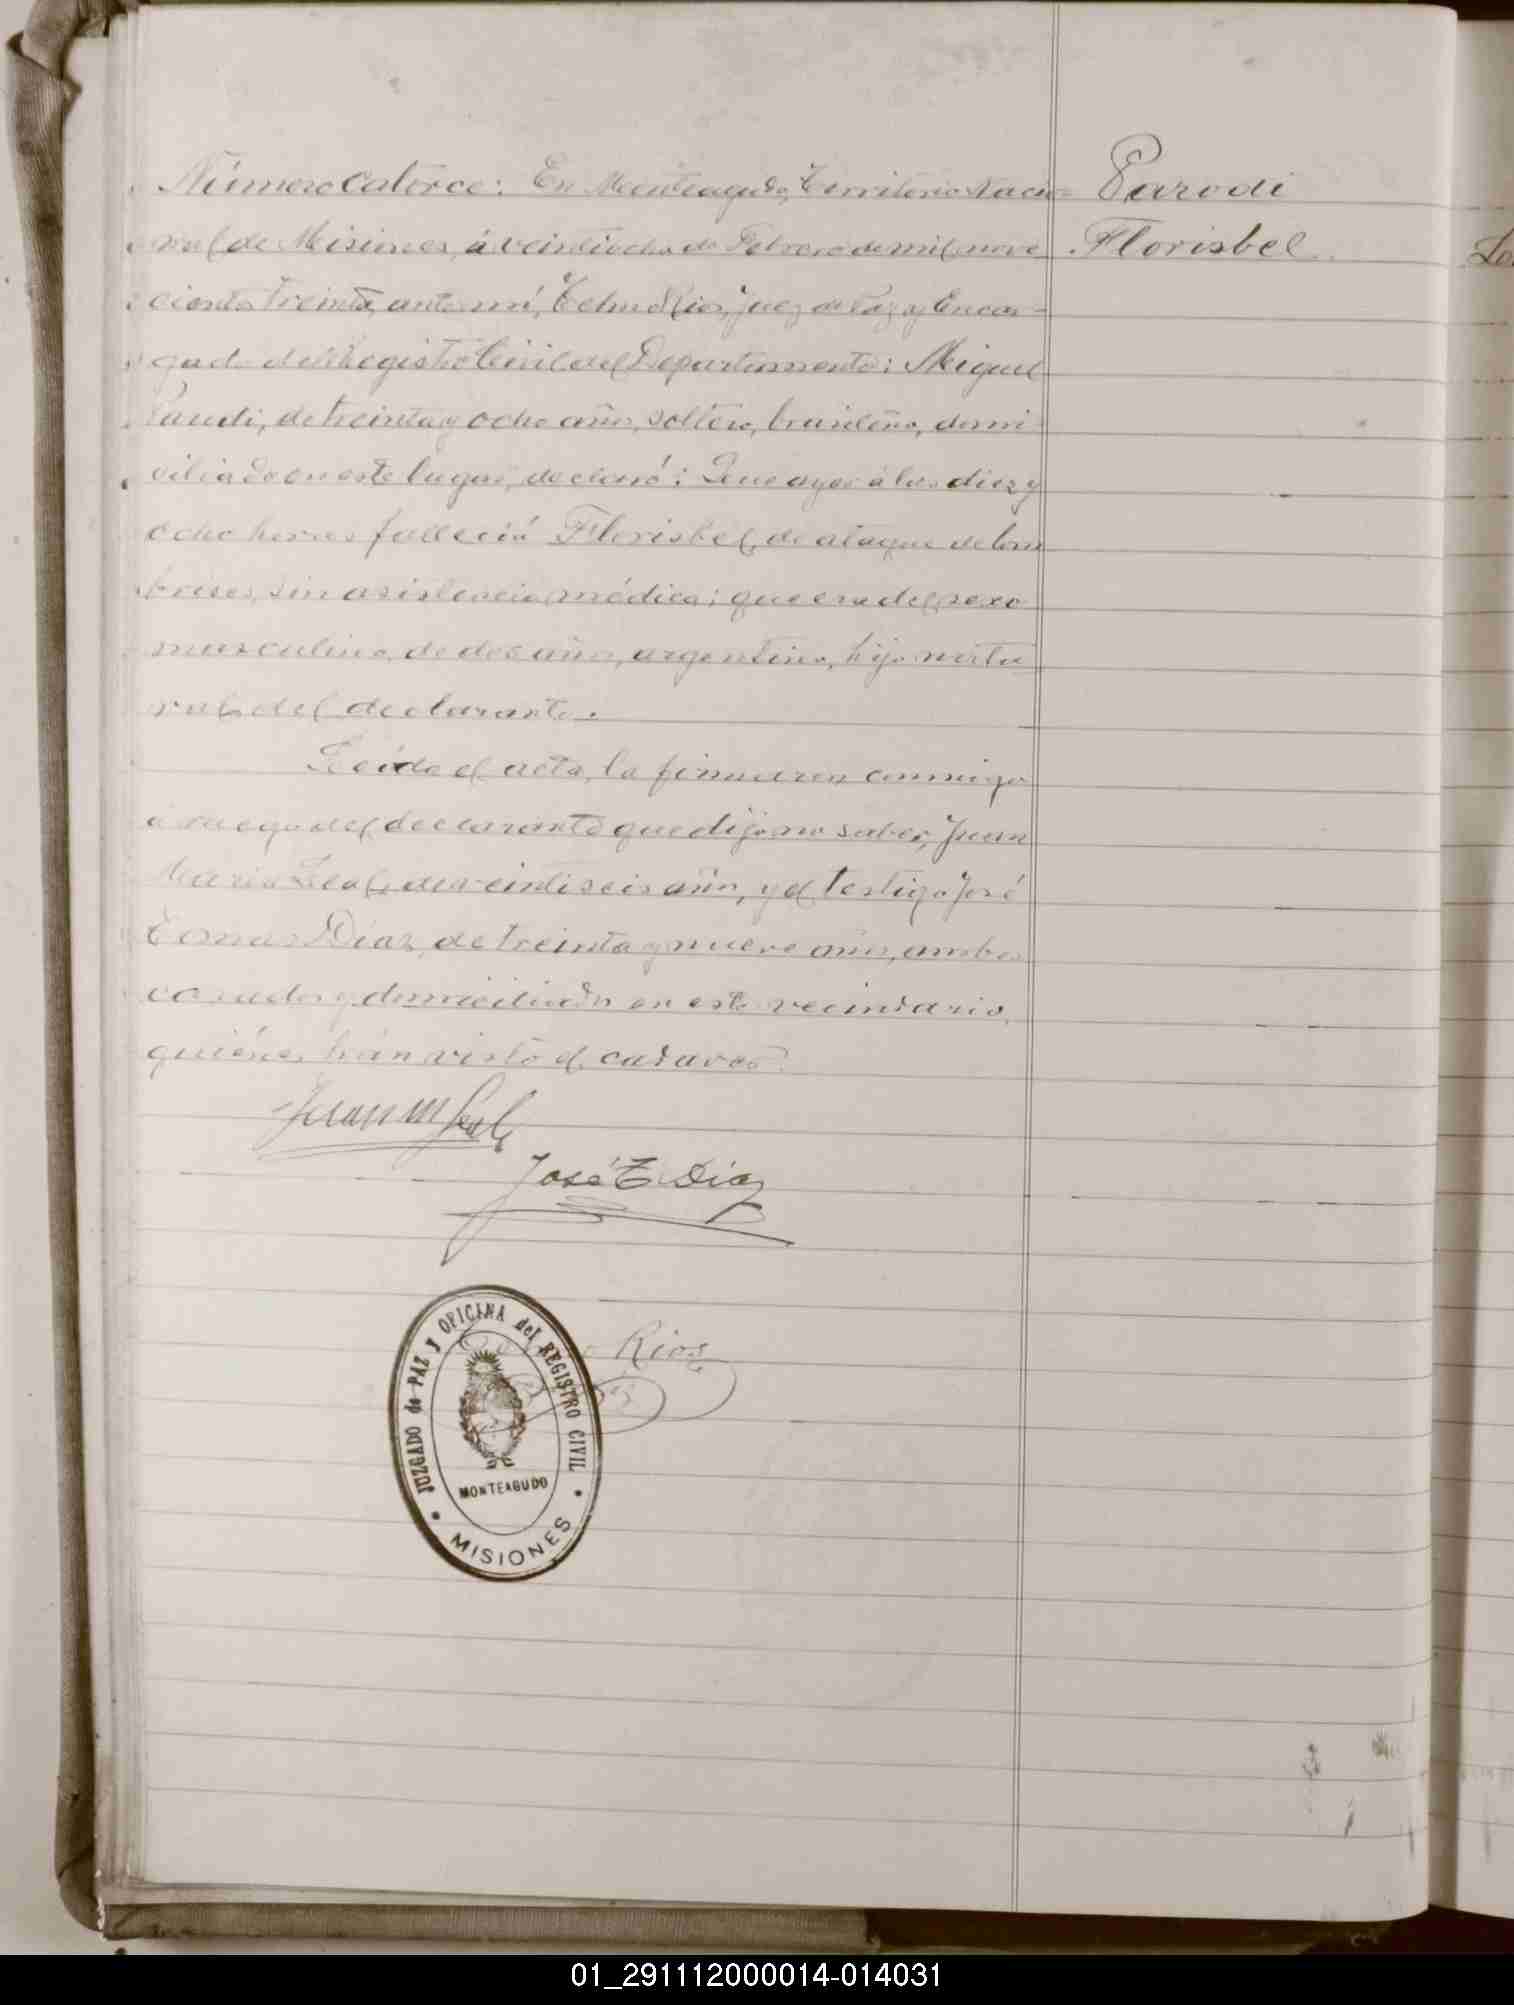 Número Catorce: En Monteagudo, Territorio Nacio-
nal de Misiones, á veintiocho de Febrero de mil nove
cientos treinta, ante mí, Telmo Rios, Juez de Paz y Encar-
gado del Registro Civil del Departamento: Miguel
Parodi, de treinta y ocho años, soltero, brasileño, domi
ciliado en este lugar, declaró: Que ayer á las diez y
ocho horas falleció Florisbel, de ataque de lom
brices, sin asistencia médica; que era del sexo
masculino, de dos años, argentino, hijo natu
ral del declarante.
Leída el acta, la firmaron conmigo
á ruego del declarante que dijo no saber, Juan
Maria Leal, de veintiseis años, y el testigo José
Tomas Díaz, de treinta y nueve años, ambos
casados y domiciliados en este vecindario,
quiénes hán visto el cadaver.
Parodi
Florisbel
Juan M Leal
José T Diaz
Telmo Rios
JUZGADO de PAZ y OFICINA del REGISTRO CIVIL
MONTEAGUDO
MISIONES
01_291112000014-014031